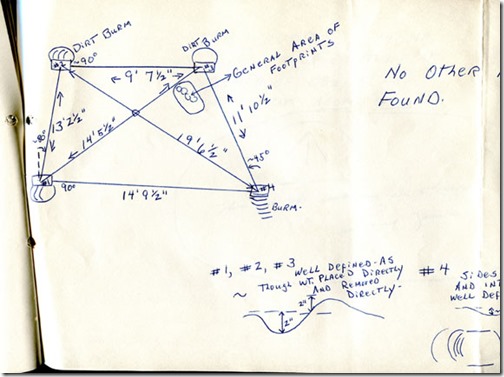 DIRT BURM
DIRT BURM
~90°
9' 7½"
GENERAL AREA OF
FOOTPRINTS
NO OTHER
FOUND.
13' 2½"
11' 10½"
14' 5½"
19' 6½"
90°
14' 9½"
#4
BURM-
#1, #2, #3 WELL DEFINED-AS
~ THOUGH WT. PLACED DIRECTLY
AND REMOVED
DIRECTLY-
2"
2"
#4 SIDES
AND INT
WELL DEF